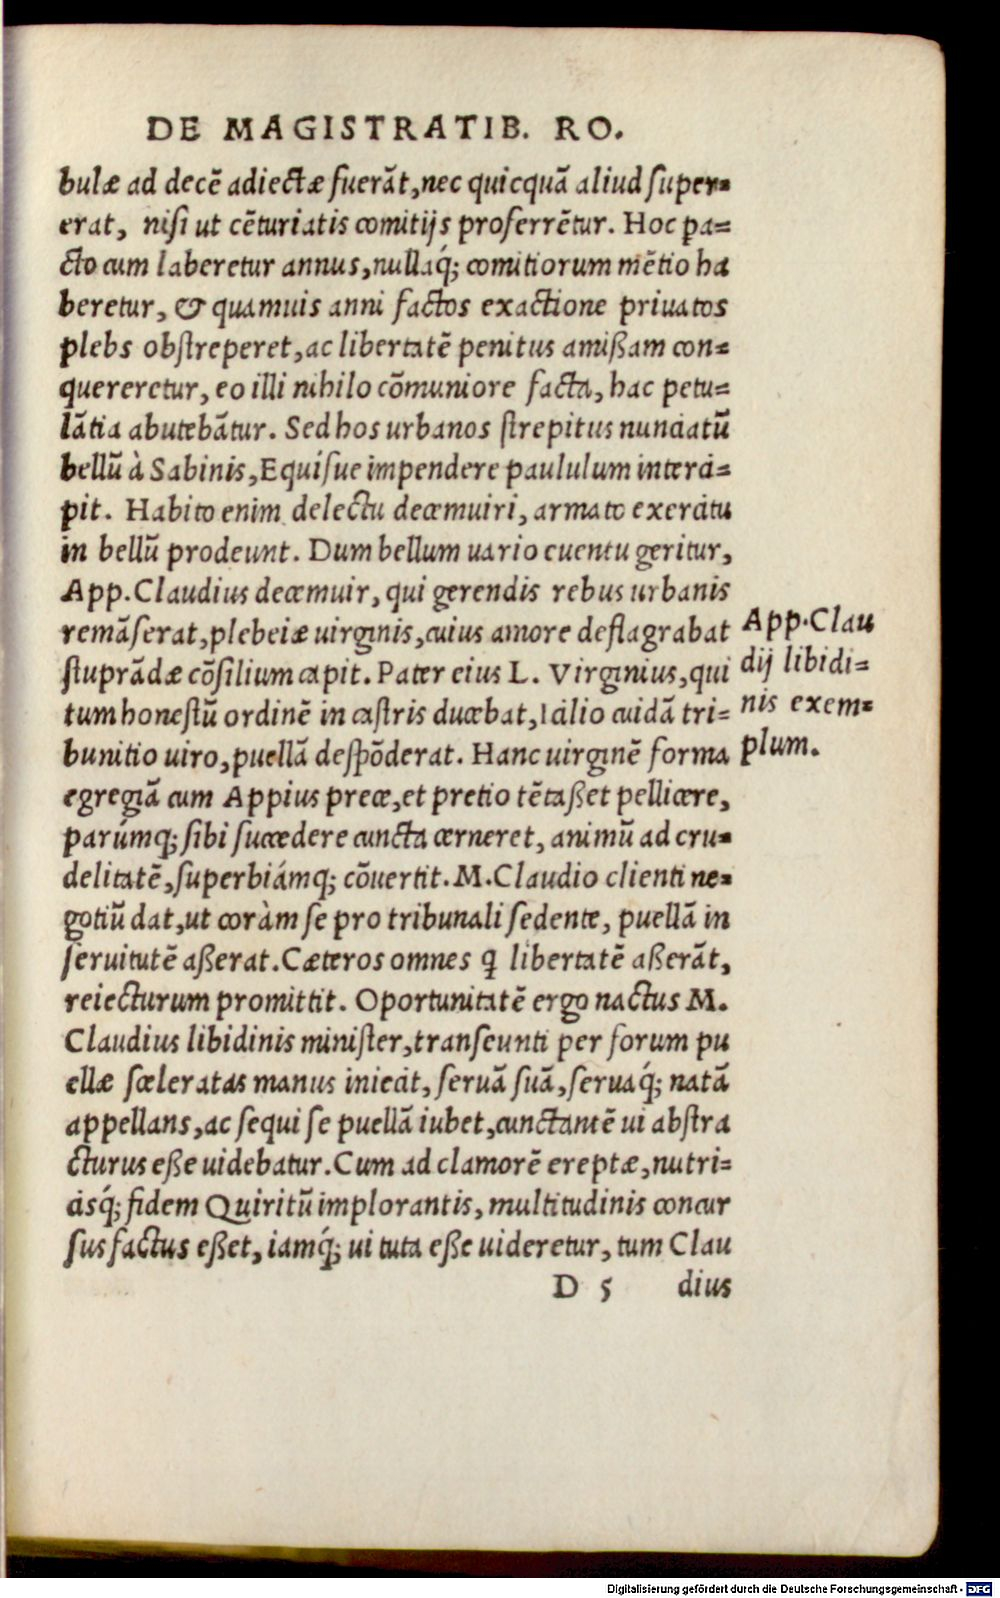 DE MAGISTRATIB. RO.
bulæ ad decẽ adiectæ fuerãt, nec quicquã aliud super-
erat, nisi ut cẽturiatis comitijs proferrẽtur. Hoc pa-
cto cum laberetur annus, nullaq́; comitiorum mẽtio ha
beretur, & quamuis anni factos exactione priuatos
plebs obstreperet, ac libertatẽ penitus amißam con-
quereretur, eo illi nihilo cõmuniore facta, hac petu-
lãtia abutebãtur. Sed hos urbanos strepitus nunciatũ
bellũ à Sabinis, Equísue impendere paululum interci-
pit. Habito enim delectu decemuiri, armato exercitu
in bellũ prodeunt. Dum bellum uario euentu geritur,
App. Claudius decemuir, qui gerendis rebus urbanis
remãserat, plebeiæ uirginis, cuius amore deflagrabat
stuprãdæ cõsilium capit. Pater eius L. Virginius, qui
tum honestũ ordinẽ in castris ducebat, Icilio cuidã tri-
bunitio uiro, puellã despõderat. Hanc uirginẽ forma
egregiã cum Appius prece, et pretio tẽtaßet pellicere,
parúmq; sibi succedere cuncta cerneret, animũ ad cru-
delitatẽ, superbiámq; cõuertit. M. Claudio clienti ne-
gotiũ dat, ut coràm se pro tribunali sedente, puellã in
seruitutẽ aßerat. Cæteros omnes q̃ libertatẽ aßerãt,
reiecturum promittit. Oportunitatẽ ergo nactus M.
Claudius libidinis minister, transeunti per forum pu
ellæ sceleratas manus iniecit, seruã suã, seruaq́; natã
appellans, ac sequi se puellã iubet, cunctantẽ ui abstra
cturus eße uidebatur. Cum ad clamorẽ ereptæ, nutri-
cisq́; fidem Quiritũ implorantis, multitudinis concur
sus factus eßet, iamq́; ui tuta eße uideretur, tum Clau
D 5 dius
App. Clau
dij libidi-
nis exem-
plum.
Digitalisierung gefördert durch die Deutsche Forschungsgemeinschaft - DFG